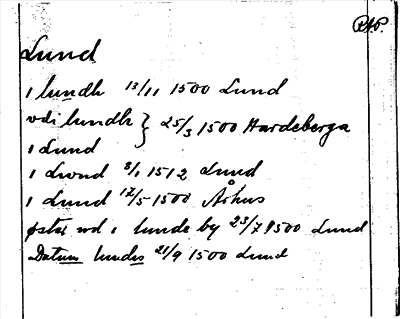 P.A.P.
Lund
i lundh 13/11 1500 Lund
vdi lundh } 25/3 1500 Hardeberga
i Lund
i Lwnd 8/1 1512 Lund
i Lund 12/5 1500 Århus
østæ wd i lunde by 23/7 1500 Lund
Datum lundis 21/9 1500 Lund